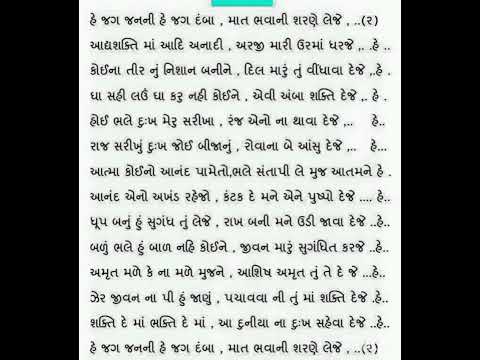 હે જગ જનની હે જગ દંબા , માત ભવાની શરણે લેજે , ..(૨)
આદ્યશક્તિ માં આદિ અનાદી , અરજી મારી ઉરમાં ધરજે ,. .હે..
કોઈના તીર નું નિશાન બનીને , દિલ મારું તું વીંધાવા દેજે ,.હે .
ઘા સહી લઉં ઘા કરુ નહી કોઈને , એવી અંબા શક્તિ દેજે ,. હે .
હોઈ ભલે દુઃખ મેરુ સરીખા , રંજ એનો ના થાવા દેજે ,.. હે .
રાજ સરીખું દુઃખ જોઈ બીજાનું , રોવાના બે આંસુ દેજે ,.. હે .
આત્મા કોઈનો આનંદ પામેતો,ભલે સંતાપી લે મુજ આતમને હે .
આનંદ એનો અખંડ રહેજો , કંટક દે મને એને પુષ્પો દેજે .... હે..
ધૂપ બનું હું સુગંધ તું લેજે , રાખ બની મને ઉડી જાવા દેજે ..હે..
બળું ભલે હું બાળ નહિ કોઈને , જીવન મારું સુગંધિત કરજે ..હે..
અમૃત મળે કે ના મળે મુજને , આશિષ અમૃત તું તે દે જે ...હે..
ઝેર જીવન ના પી હું જાણું , પચાવવા ની તું માં શક્તિ દેજે ..હે..
શક્તિ દે માં ભક્તિ દે માં , આ દુનીયા ના દુઃખ સહેવા દેજે ..હે..
હે જગ જનની હે જગ દંબા , માત ભવાની શરણે લેજે , ..(૨)